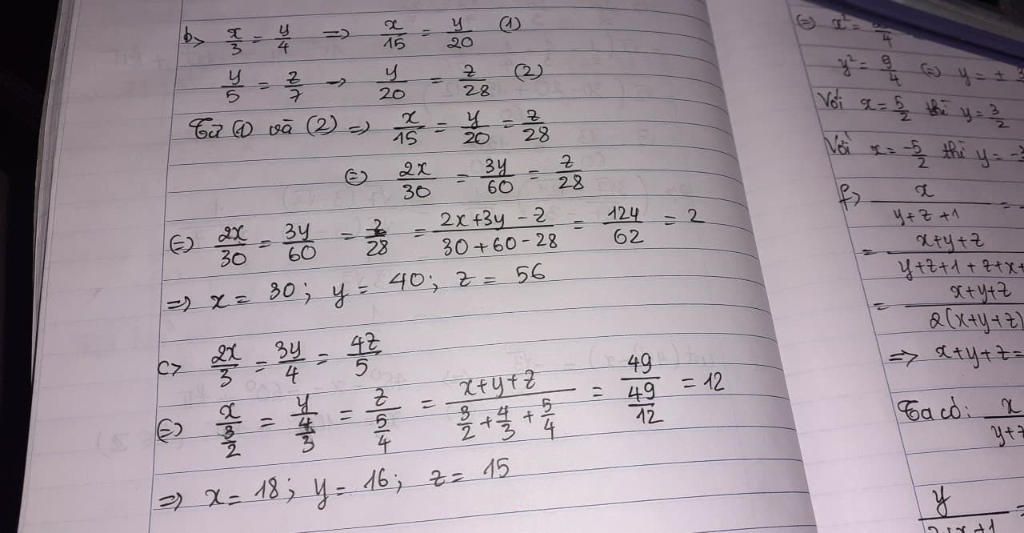 b> x/3 = y/4 => x/15 = y/20 (1)
y/5 = z/7 => y/20 = z/28 (2)
Từ (1) và (2) => x/15 = y/20 = z/28
(=) 2x/30 = 3y/60 = z/28
(=) 2x/30 = 3y/60 = z/28 = (2x+3y-z)/(30+60-28) = 124/62 = 2
=> x = 30; y = 40; z = 56
c> 2x/3 = 3y/4 = 4z/5
(=) x/(3/2) = y/(4/3) = z/(5/4) = (x+y+z)/(3/2+4/3+5/4) = 49/(49/12) = 12
=> x = 18; y = 16; z = 15
(=) x² =
y² = 9/4 (=) y = ±
Với x = 5/2 thì y = 3/2
Với x = -5/2 thì y =
f> x/(y+z+1) =
= (x+y+z)/(y+z+1+z+x+
= (x+y+z)/(2(x+y+z)
=> x+y+z =
Ta có: x/(y+z
y